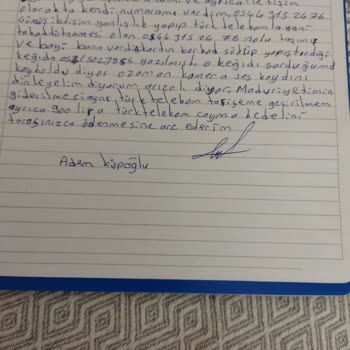 ve ayrıca iletişim
olacakta kendi numaramı verdim, 0544 315 2476
Günü iletişim yanlışlık yapıp türk telekomla yeni
taahhütnamesi olan 0544 315 24 76 nolu
ve bayi bana verdi kartın barkod söküp yapıştırdığı
kağıda yazılmıştı o kağıdı sorduğumda
kayboldu diyor o zaman kamera ses kaydını
dinleyelim diyorum arızalı diyor. Mağduriyetimin
giderilmesi türk telekom tarifeme geçirilmem
ayrıca 900 lira türk telekom cayma bedelini
tarafınızca ödenmesine arz ederim
Adem